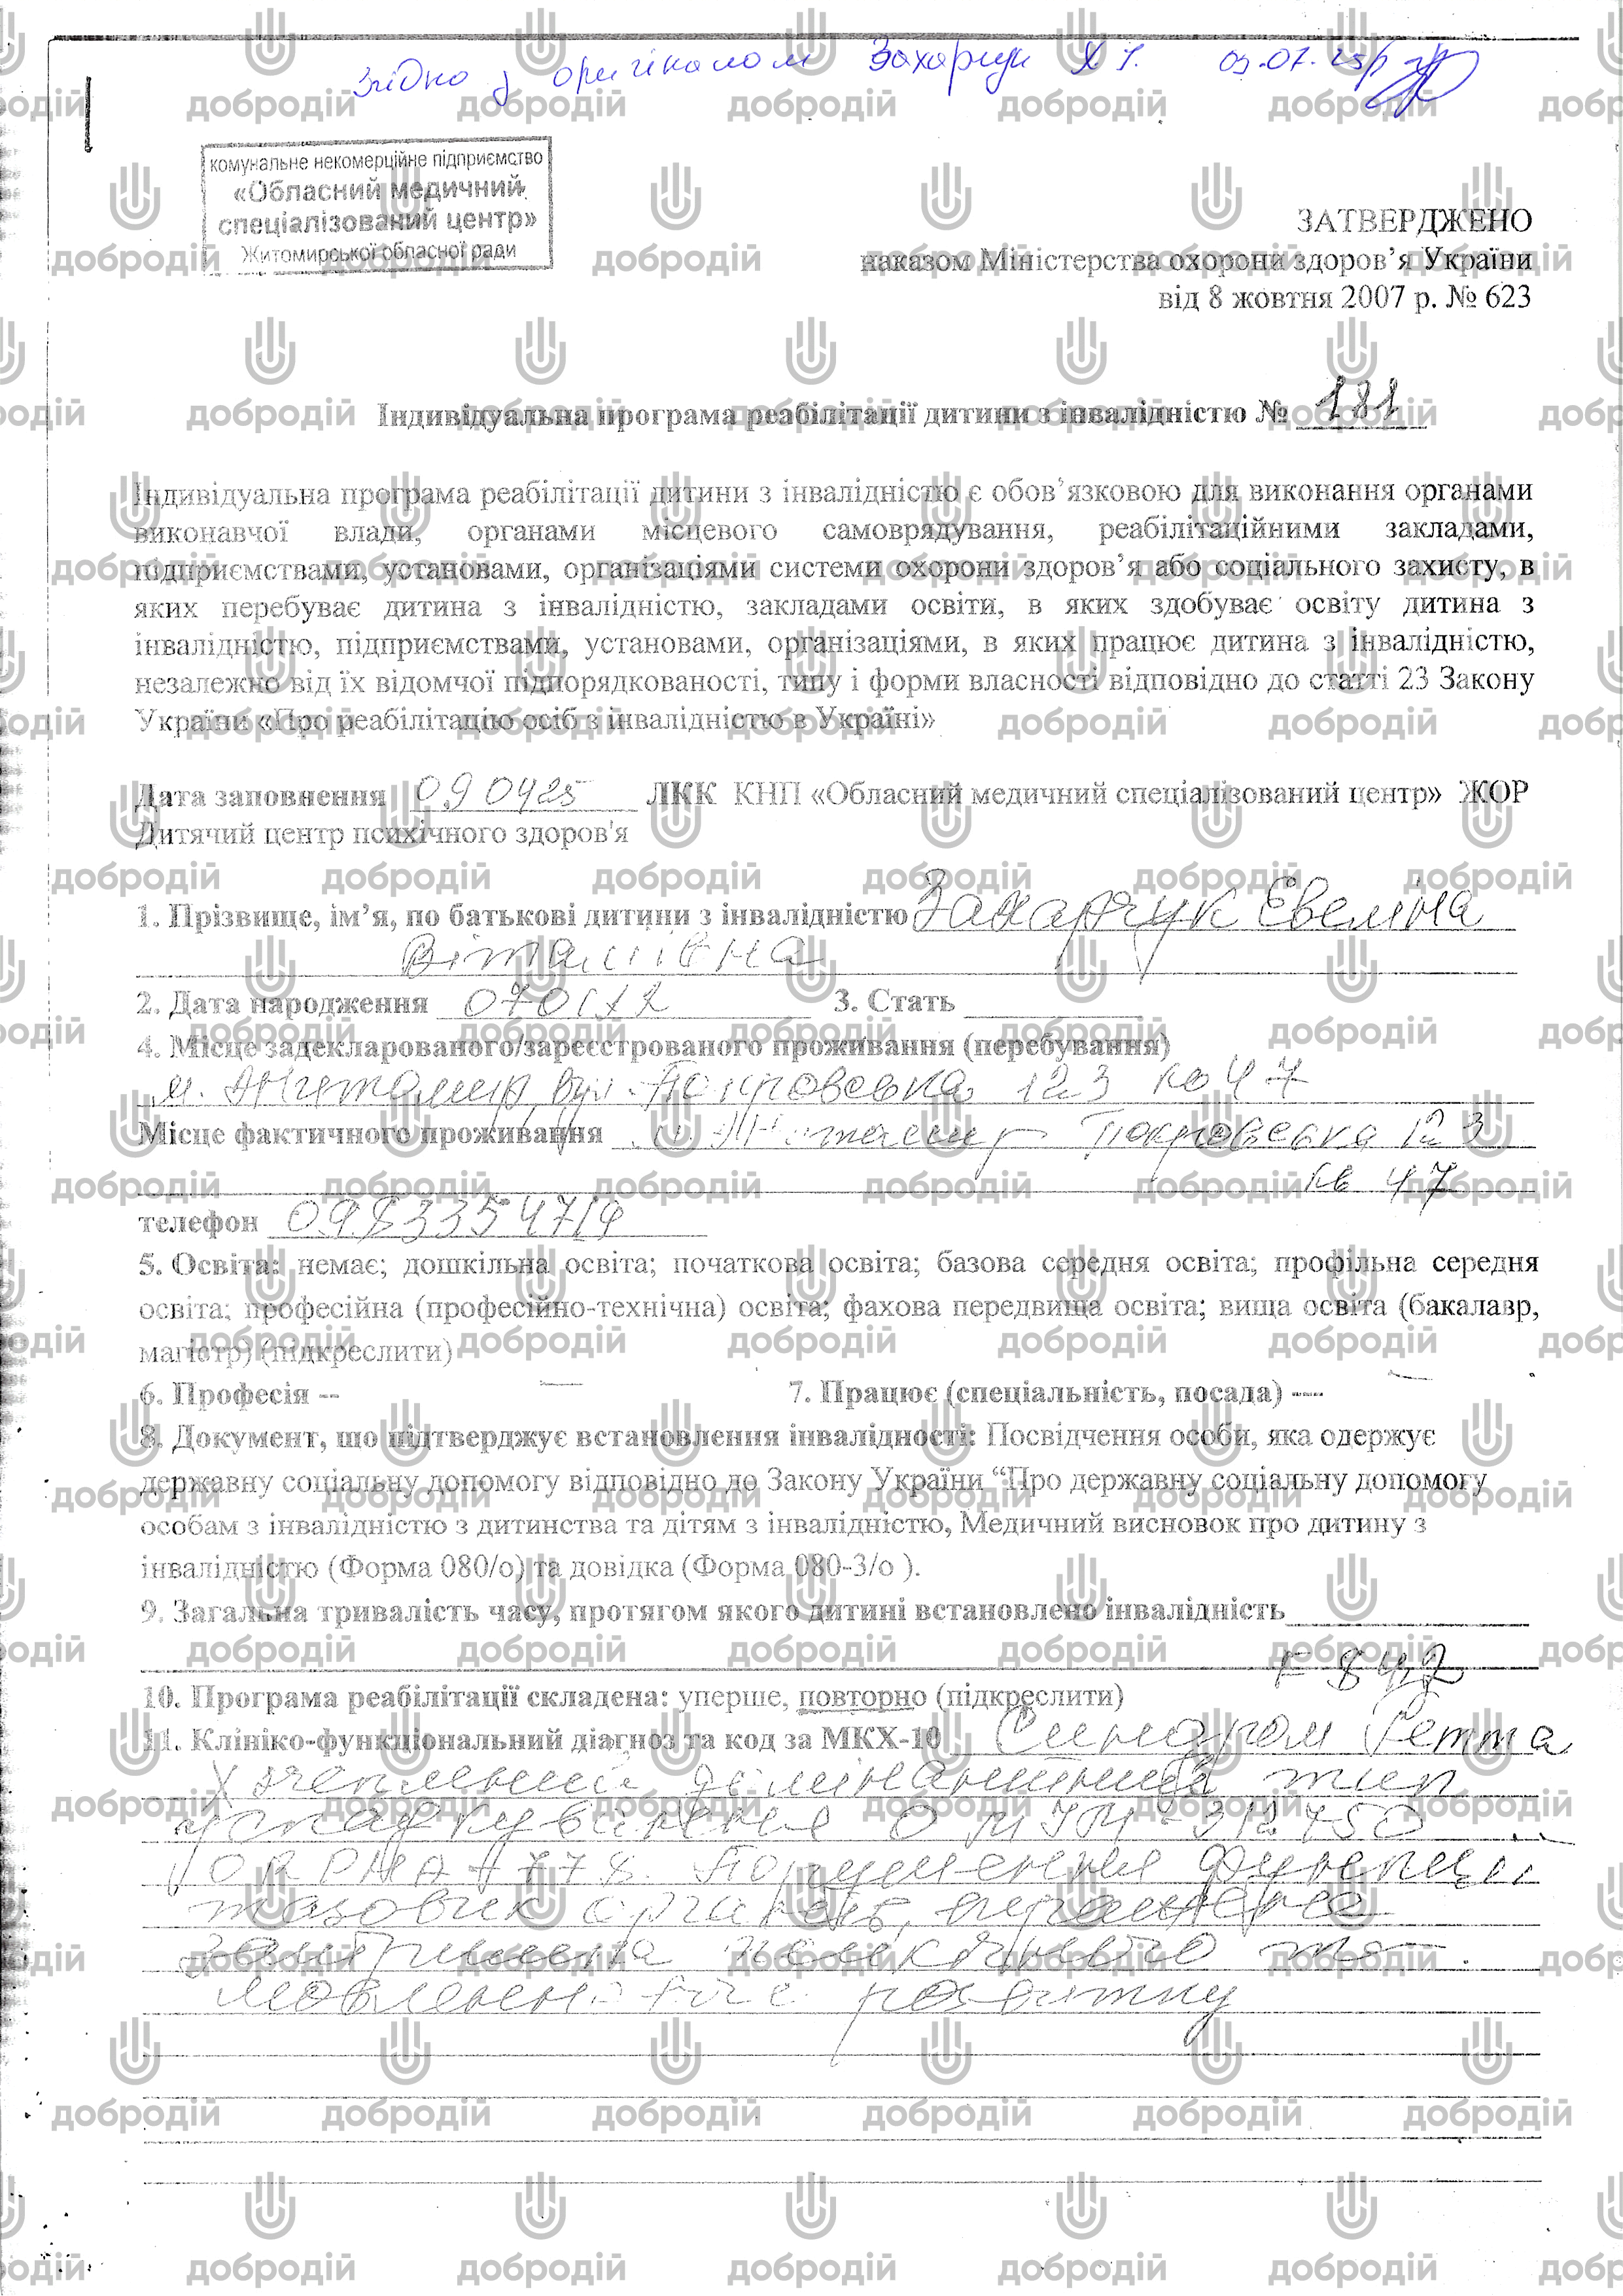 Згідно з оригіналом Захарчук Х.І. 09.07.25р
комунальне некомерційне підприємство
«Обласний медичний
спеціалізований центр»
Житомирської обласної ради
ЗАТВЕРДЖЕНО
наказом Міністерства охорони здоров’я України
від 8 жовтня 2007 р. № 623
Індивідуальна програма реабілітації дитини з інвалідністю № 181
Індивідуальна програма реабілітації дитини з інвалідністю є обов’язковою для виконання органами
виконавчої влади, органами місцевого самоврядування, реабілітаційними закладами,
підприємствами, установами, організаціями системи охорони здоров’я або соціального захисту, в
яких перебуває дитина з інвалідністю, закладами освіти, в яких здобуває освіту дитина з
інвалідністю, підприємствами, установами, організаціями, в яких працює дитина з інвалідністю,
незалежно від їх відомчої підпорядкованості, типу і форми власності відповідно до статті 23 Закону
України «Про реабілітацію осіб з інвалідністю в Україні»
Дата заповнення 090425 ЛКК КНП «Обласний медичний спеціалізований центр» ЖОР
Дитячий центр психічного здоров'я
1. Прізвище, ім’я, по батькові дитини з інвалідністю Захарчук Евеліна
Віталіївна
2. Дата народження 3. Стать
4. Місце задекларованого/зареєстрованого проживання (перебування)
м. Житомир вул. Покровська 123 кв 47
Місце фактичного проживання м. Житомир Покровська 123
кв 47
телефон
5. Освіта: немає; дошкільна освіта; початкова освіта; базова середня освіта; профільна середня
освіта; професійна (професійно-технічна) освіта; фахова передвища освіта; вища освіта (бакалавр,
магістр) (підкреслити)
6. Професія -- 7. Працює (спеціальність, посада) ---
8. Документ, що підтверджує встановлення інвалідності: Посвідчення особи, яка одержує
державну соціальну допомогу відповідно до Закону України “Про державну соціальну допомогу
особам з інвалідністю з дитинства та дітям з інвалідністю, Медичний висновок про дитину з
інвалідністю (Форма 080/о) та довідка (Форма 080-3/о ).
9. Загальна тривалість часу, протягом якого дитині встановлено інвалідність
F 84.2
10. Програма реабілітації складена: уперше, повторно (підкреслити)
11. Клініко-функціональний діагноз та код за МКХ-10 Синдром Ретта
Х зчеплений домінантний тип
успадкування OMIM-312750
ORPHA-778. Порушення функції
тазових органів,
затримка психічного та
мовленнєвого розвитку
добродій